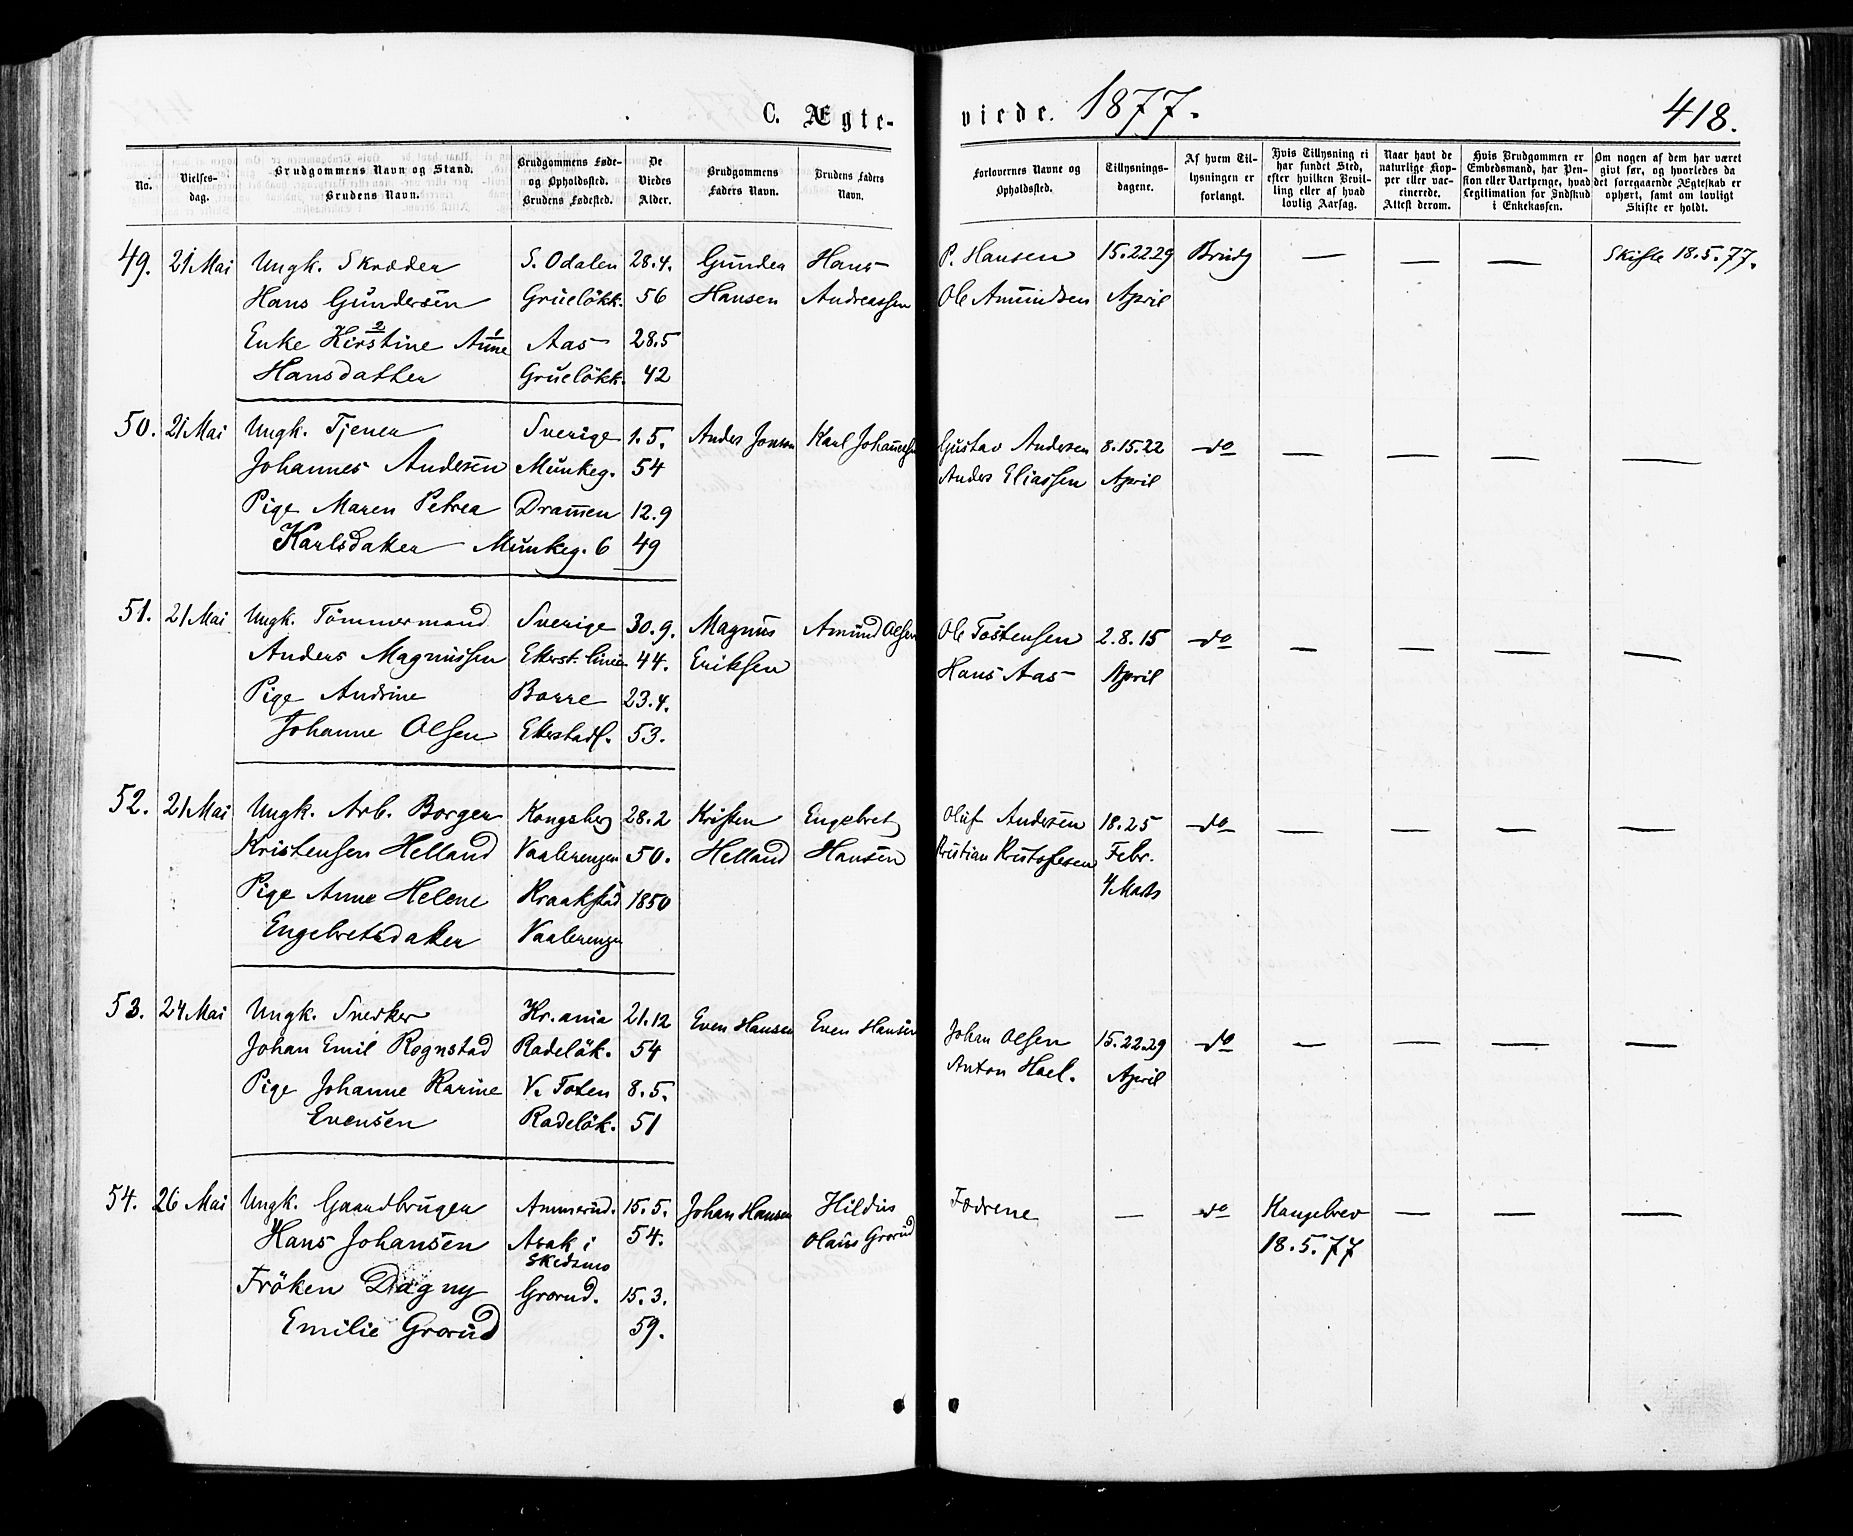 C. Ægte- viede. 1877. 418.
No. Vielses-dag. Brudgommens Navn og Stand. Brudens Navn. Brudgommens Føde- og Opholdssted. Brudens Fødested. De Viedes Alder. Brudgommens Faders Navn. Brudens Faders Navn. Forlovernes Navne og Opholdssted. Tillysnings-dagene. Af hvem Til-lysningen er forlangt. Hvis Tillysning ei har fundet Sted, efter hvilken Bevil-ling eller af hvad lovlig Aarsag. Naar havt de naturlige Kop-per eller vac-cinerede. Attest derom. Hvis Brudgommen er Embedsmand, har Pen-sion eller Vartpenge, hvad Legitimation for Indskud i Enkekassen. Om nogen af dem har været givt før, og hvorledes da det foregaaende Ægteskab er ophørt, samt om lovligt Skifte er holdt.
49. 21 Mai Ungk. Skræder S. Odalen 28.4. Gunder Hans P. Hansen 15.22.29 Brudg — — — Skifte 18.5.77.
Hans Gundersen Grueløkk. 56 Hansen Andreassen Ole Amundsen April
Enke Kirstine 2 Anne 1 Aas 28.5
Hansdatter Grueløkk. 42
50. 21 Mai Ungk. Tjener Sverige 1.5. Anders Jonsen Karl Johannesen Gustav Andersen 8.15.22 do — — — —
Johannes Andersen Munkeg. 54 Anders Eliassen April
Pige Maren Petrea Dramen 12.9
Karlsdatter Munkeg. 6 49
51. 21 Mai Ungk. Tømmermand Sverige 30.9. Magnus Amund Olsen Ole Tostensen 2.8.15 do — — — —
Anders Magnussen Ekerst. linie 44. Eriksen Hans Aas April
Pige Andrine Borre 23.4.
Johanne Olsen Ekerstadl. 53.
52. 21 Mai Ungk. Arb. Borger Kongsberg 28.2 Kristen Engebret Oluf Andersen 18.25 do — — — —
Kristensen Helland Vaalerengen 50. Helland Hansen Kristian Kristofersen Febr.
Pige Anne Helene Kraakstad 1850 4 Marts
Engebretsdatter Vaalerengen
53. 24 Mai Ungk. Snedker Kr.ania 21.12 Even Hansen Even Hansen Johan Olsen 15.22.29 do — — — —
Johan Emil Rognstad Rodeløk. 54 Anton Hoel. April
Pige Johanne Karine V. Toten 8.5.
Evensen Rodeløk. 51
54. 26 Mai Ungk. Gaardbruger Ammerud. 15.5. Johan Hansen Hildus Fædrene — do Kongebrev — — —
Hans Johansen Asak i Skedsmo 54. Olaus Grorud 18.5.77
Frøken Dagny Grorud. 15.3.
Emilie Grorud 59.